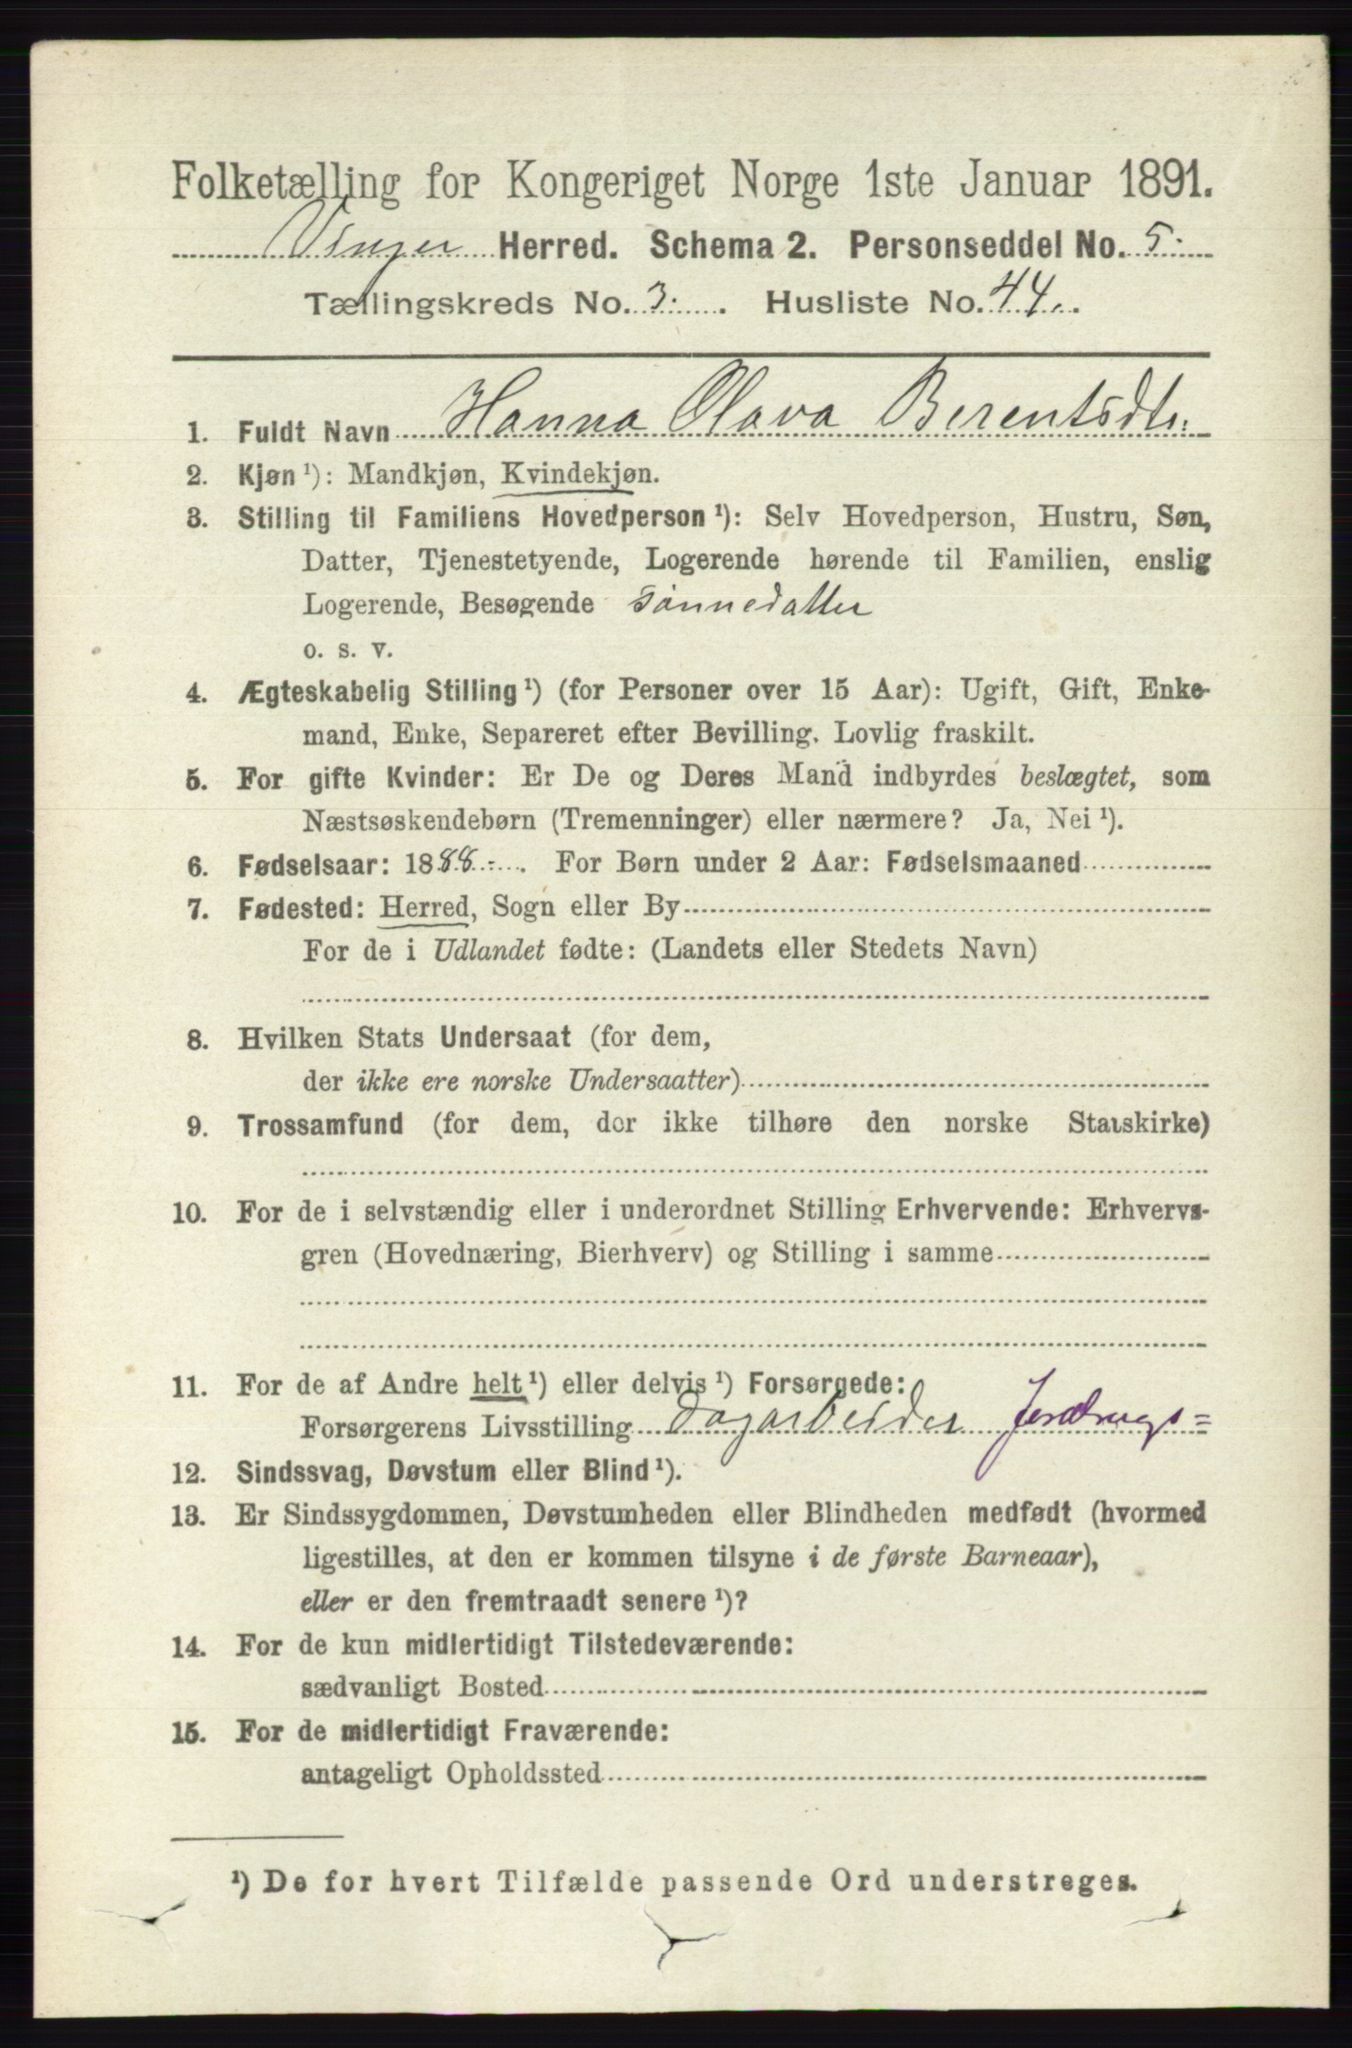 Folketælling for Kongeriget Norge 1ste Januar 1891.
Vinger Herred. Schema 2. Personseddel No. 5.
Tællingskreds No. 3. Husliste No. 44.
1. Fuldt Navn Hanna Olava Berentsdtr.
2. Kjøn ¹): Mandkjøn, Kvindekjøn.
3. Stilling til Familiens Hovedperson ¹): Selv Hovedperson, Hustru, Søn,
Datter, Tjenestetyende, Logerende hørende til Familien, enslig
Logerende, Besøgende Sønnedatter
o. s. v.
4. Ægteskabelig Stilling ¹) (for Personer over 15 Aar): Ugift, Gift, Enke-
mand, Enke, Separeret efter Bevilling. Lovlig fraskilt.
5. For gifte Kvinder: Er De og Deres Mand indbyrdes beslægtet, som
Næstsøskendebørn (Tremenninger) eller nærmere? Ja, Nei ¹).
6. Fødselsaar: 1888. For Børn under 2 Aar: Fødselsmaaned
7. Fødested: Herred, Sogn eller By
For de i Udlandet fødte: (Landets eller Stedets Navn)
8. Hvilken Stats Undersaat (for dem,
der ikke ere norske Undersaatter)
9. Trossamfund (for dem, der ikke tilhøre den norske Statskirke)
10. For de i selvstændig eller i underordnet Stilling Erhvervende: Erhvervs-
gren (Hovednæring, Bierhverv) og Stilling i samme
11. For de af Andre helt ¹) eller delvis ¹) Forsørgede:
Forsørgerens Livsstilling Dagarbeider Jordbrugs=
12. Sindssvag, Døvstum eller Blind ¹).
13. Er Sindssygdommen, Døvstumheden eller Blindheden medfødt (hvormed
ligestilles, at den er kommen tilsyne i de første Barneaar),
eller er den fremtraadt senere ¹)?
14. For de kun midlertidigt Tilstedeværende:
sædvanligt Bosted
15. For de midlertidigt Fraværende:
antageligt Opholdssted
¹) De for hvert Tilfælde passende Ord understreges.